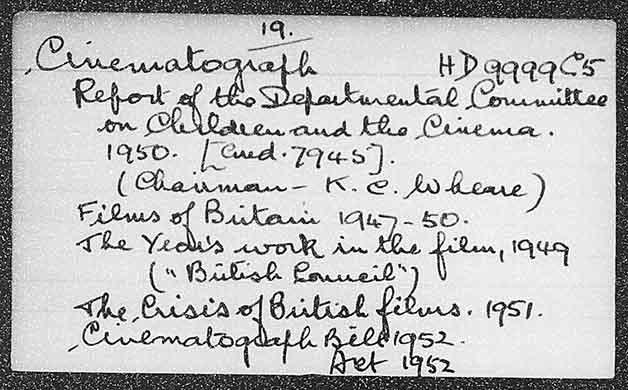 19.
Cinematograph HD9999C5
Report of the Departmental Committee
on Children and the Cinema.
1950. [Cmd. 7945].
(Chairman - K. C. Wheare)
Films of Britain 1947-50.
The Year's work in the film, 1949
("British Council")
The Crisis of British films. 1951.
Cinematograph Bill 1952.
Act 1952